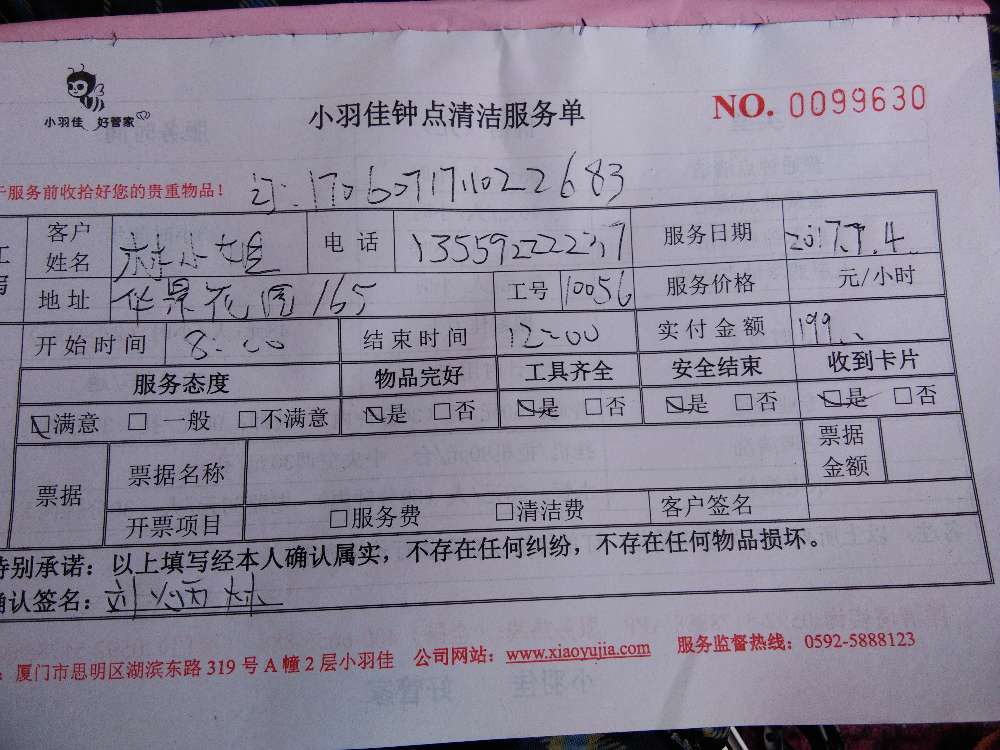 小羽佳 好管家
小羽佳钟点清洁服务单
NO. 0099630
于服务前收拾好您的贵重物品！
订:170607171022683
客户姓名 林小姐 电话 服务日期 2017.7.4
地址 华景花园165 工号 10056 服务价格 元/小时
开始时间 8:00 结束时间 12:00 实付金额 199
服务态度 物品完好 工具齐全 安全结束 收到卡片
☑满意 □一般 □不满意 ☑是 □否 ☑是 □否 ☑是 □否 ☑是 □否
票据 票据名称 票据金额
开票项目 □服务费 □清洁费 客户签名
特别承诺：以上填写经本人确认属实，不存在任何纠纷，不存在任何物品损坏。
确认签名：刘炳林
：厦门市思明区湖滨东路 319 号 A 幢 2 层小羽佳 公司网站：www.xiaoyujia.com 服务监督热线：0592-5888123